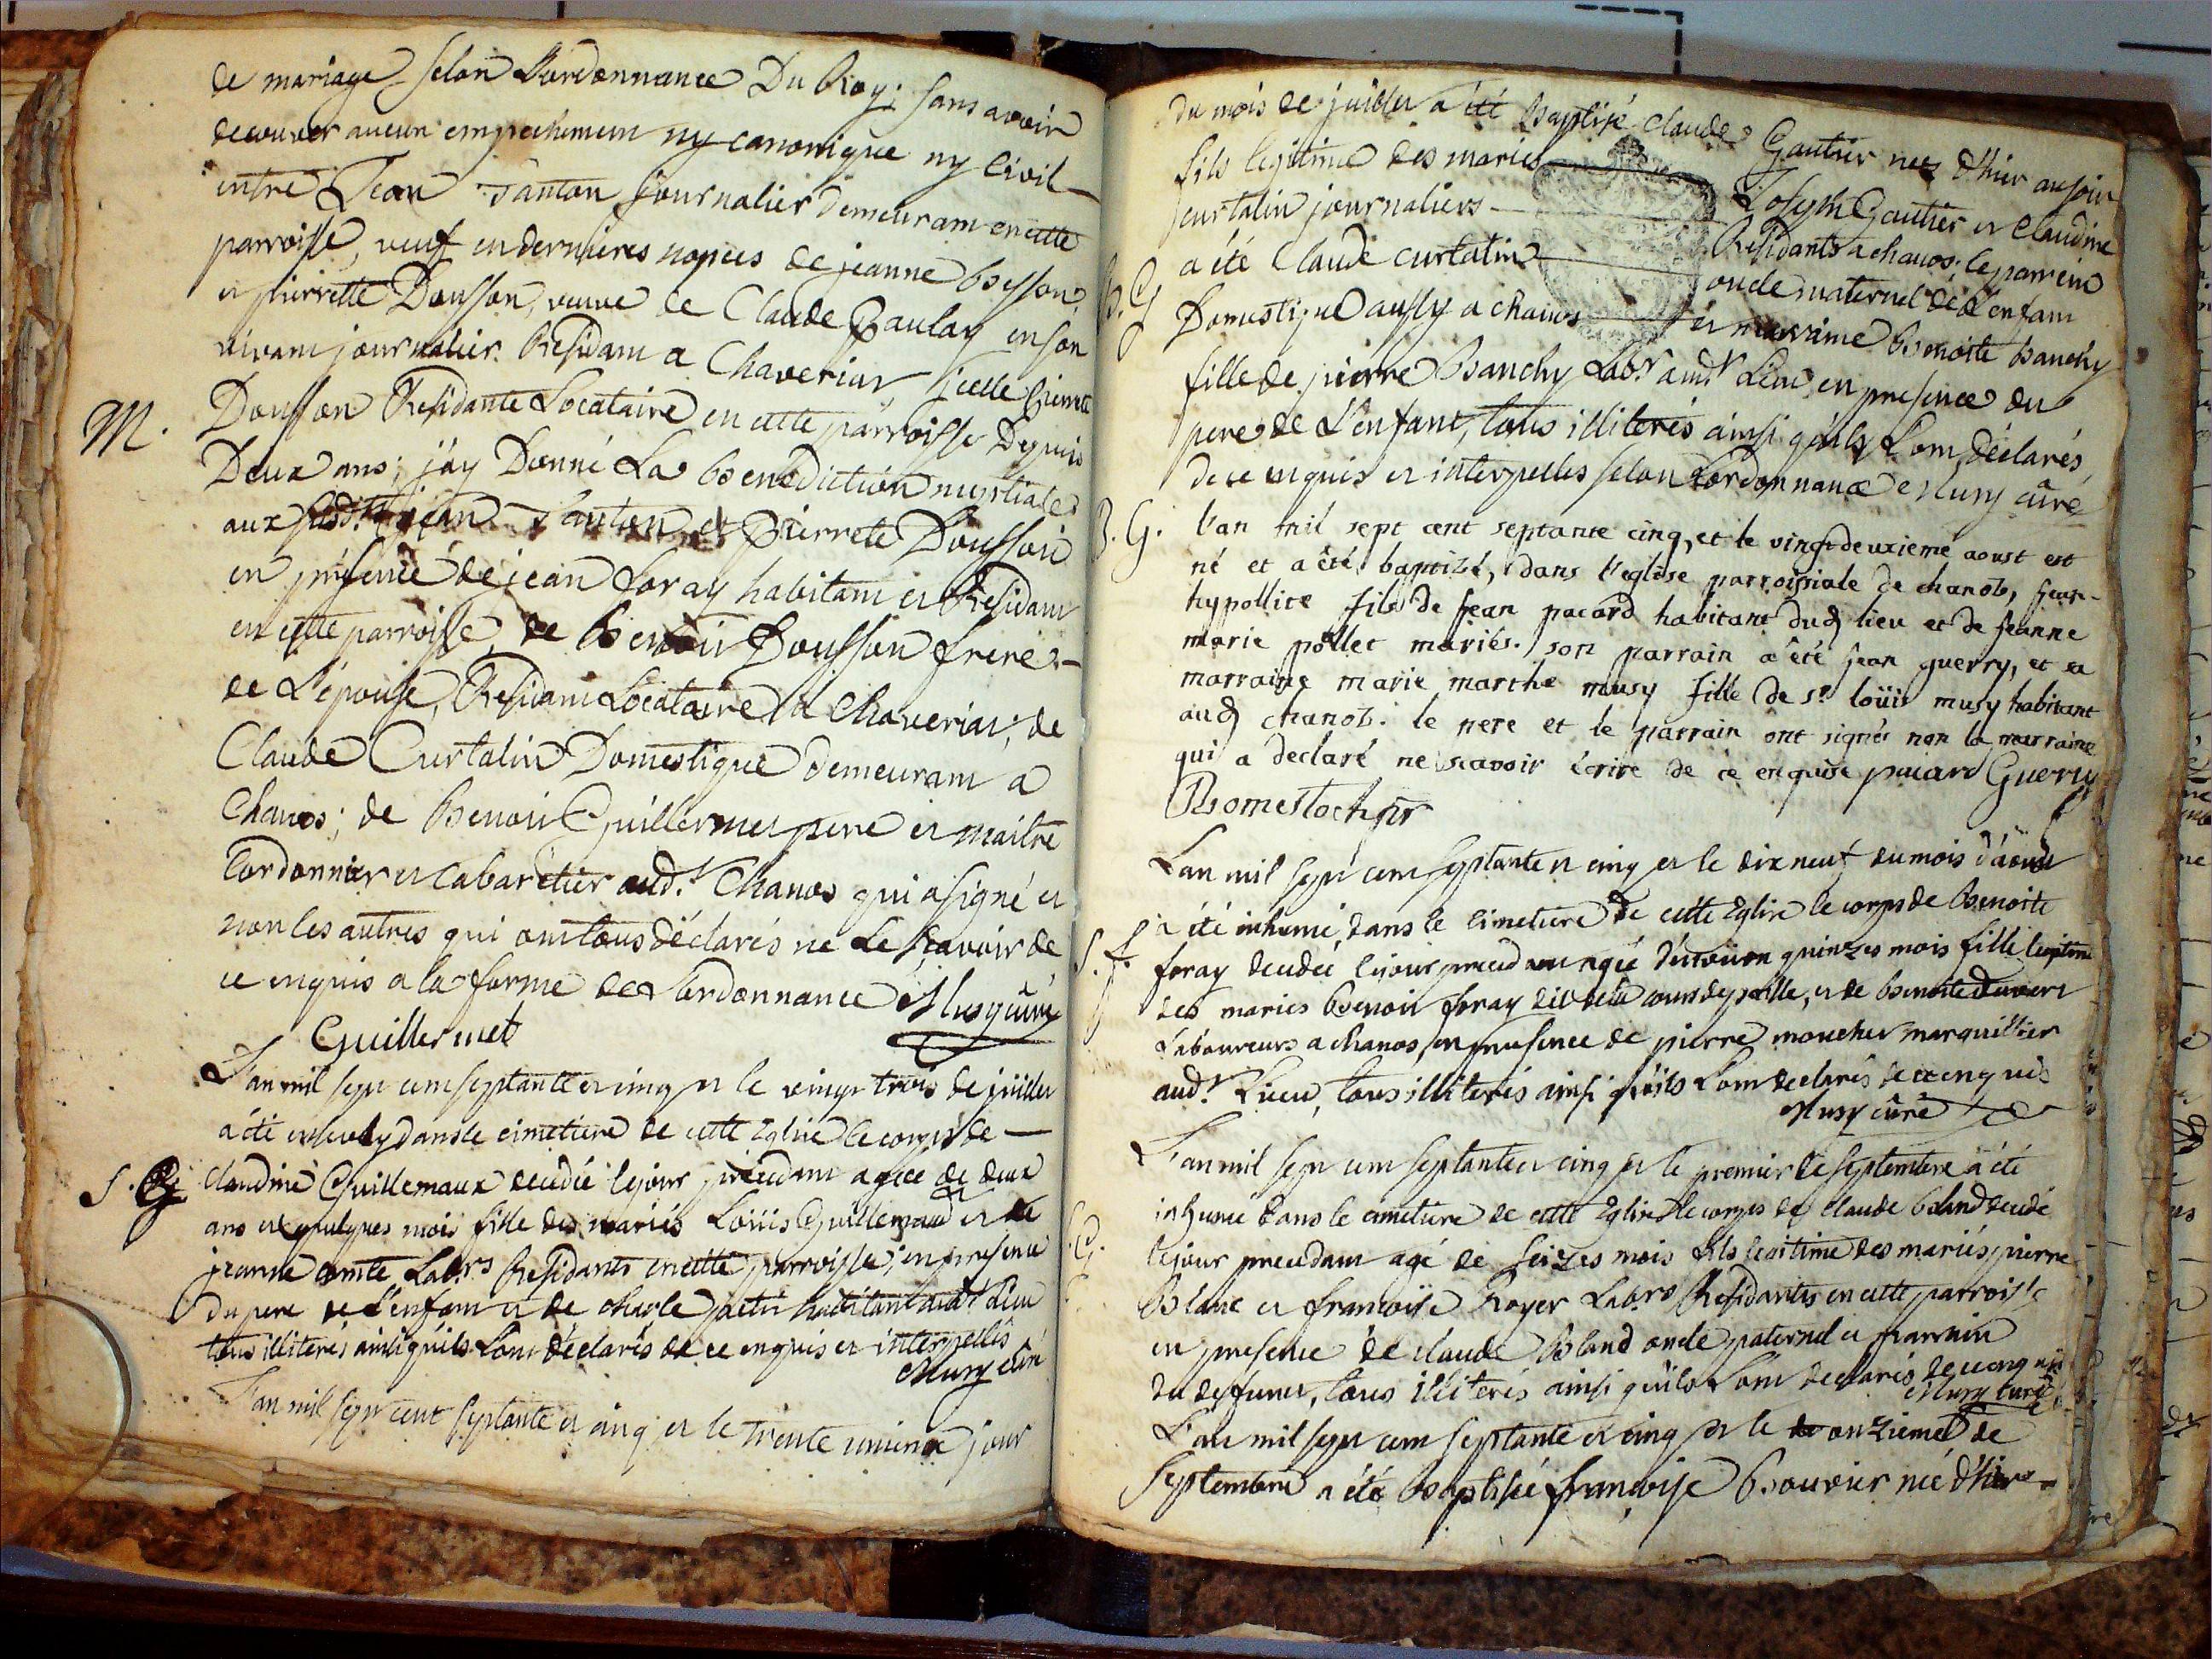 de mariage selon L'ordonnance Du Roy; sans avoir
decouver aucun empechemem ny canonique ny Civil
entre Jean Janton journalier demeuram en cette
parroisse, veuf en dernieres nopces de jeanne besson
et pierrette Dousson, veuve de Claude Paulay en son
vivam journalier Residam a Chaveriat icelle pierrette
M. Dousson Residante Locataire en cette parroisse Depuis
Deux ans; j'ay Donné La Benediction nuptiale
aux susd.ts jean Janton et pierrete Dousson
en présence de jean Foray habitam et Residam
en cette parroisse, de Benoit Dousson frere
de L'épouse, Residam Locataire a Chaveriat; de
Claude Curtalin Domestique demeuram a
Chanos; de Benoit Guillermet pere et maitre
Cordonnier et Cabaretier aud.t Chanos qui a signé et
non les autres qui om tous déclarés ne Le scavoir de
ce enquis a la forme de L'ordonnance Musy curé
Guillermet
L'an mil sept cem septante et cinq et le vingt trois de juillet
a été ensevely dans le cimetiere de cette Eglise le corps de
S. G. Claudine Guillemaux decedée le jour précedam agée de deux
ans et quelques mois fille des mariés Loüis Guillemaud et de
jeanne Lab.rs Residants en cette parroisse; en presence
du pere de L'enfam et de charle habitant aud.t Lieu
tous illiterés ainsi qu'ils L'om déclarés de ce enquis et interpellés
Musy curé
L'an mil sept cent septante et cinq et le trente unieme jour
du mois de juillet a été Baptisé Claude Gautier née d'hier au soir
fils legitime des mariés Joseph Gautier et Claudine
curtalin journaliers Residants a chanos; le parrein
a été Claude Curtalin oncle maternel de L'enfam
B. G Domestique aussy a chanos et marraine Benoite Banchy
fille de pierre Banchy Lab.r aud.t Lieu en presence du
pere de L'enfant, tous illiterés ainsi qu'ils L'om déclarés
de ce enquis et interpellés selon L'ordonnance Musy curé
B. G. l'an mil sept cent septante cinq, et le vingtdeuxieme aoust est
né et a été baptizé, dans l'eglise parroissiale de chanoz, jean-
hypollite fils de jean pacard habitant dud lieu et de jeanne
marie pollet mariés. son parrain a été jean guerry, et sa
marraine marie marthe musy fille de s.r loüis musy habitant
aud chanoz. le pere et le parrain ont signés non la marraine
qui a declaré ne scavoir écrire de ce enquise pacard Guerry
L'an mil sept cem septante et cinq et le dix neuf du mois d'aoust
a été inhumé dans le cimetiere de cette Eglise le corps de Benoite
S. f. foray decedée le jour precedam agée d'environ quinzes mois fille legitime
des mariés Benoit foray dit de la cours de paille, et de Benoite
Laboureurs a chanos, en presence de pierre moucher marguillier
aud.t Lieu, tous illiterés ainsi qu'ils L'om declarés de ce enquis
Musy curé
L'an mil sept cem septante et cinq et le premier de septembre a été
inhumé dans le cimetiere de cette Eglise le corps de Claude Bland decedé
le jour precedam agé de seizes mois fils legitime des mariés pierre
Blanc et francoise Royer Lab.rs Residants en cette parroisse
en presence de claude Bland oncle paternel et parrain
du deffunct, tous illiterés ainsi qu'ils L'om declarés de ce enquis
Musy curé
L'an mil sept cem septante et cinq et le onzieme de
Septembre a été Baptisée françoise Bouvier née d'hier